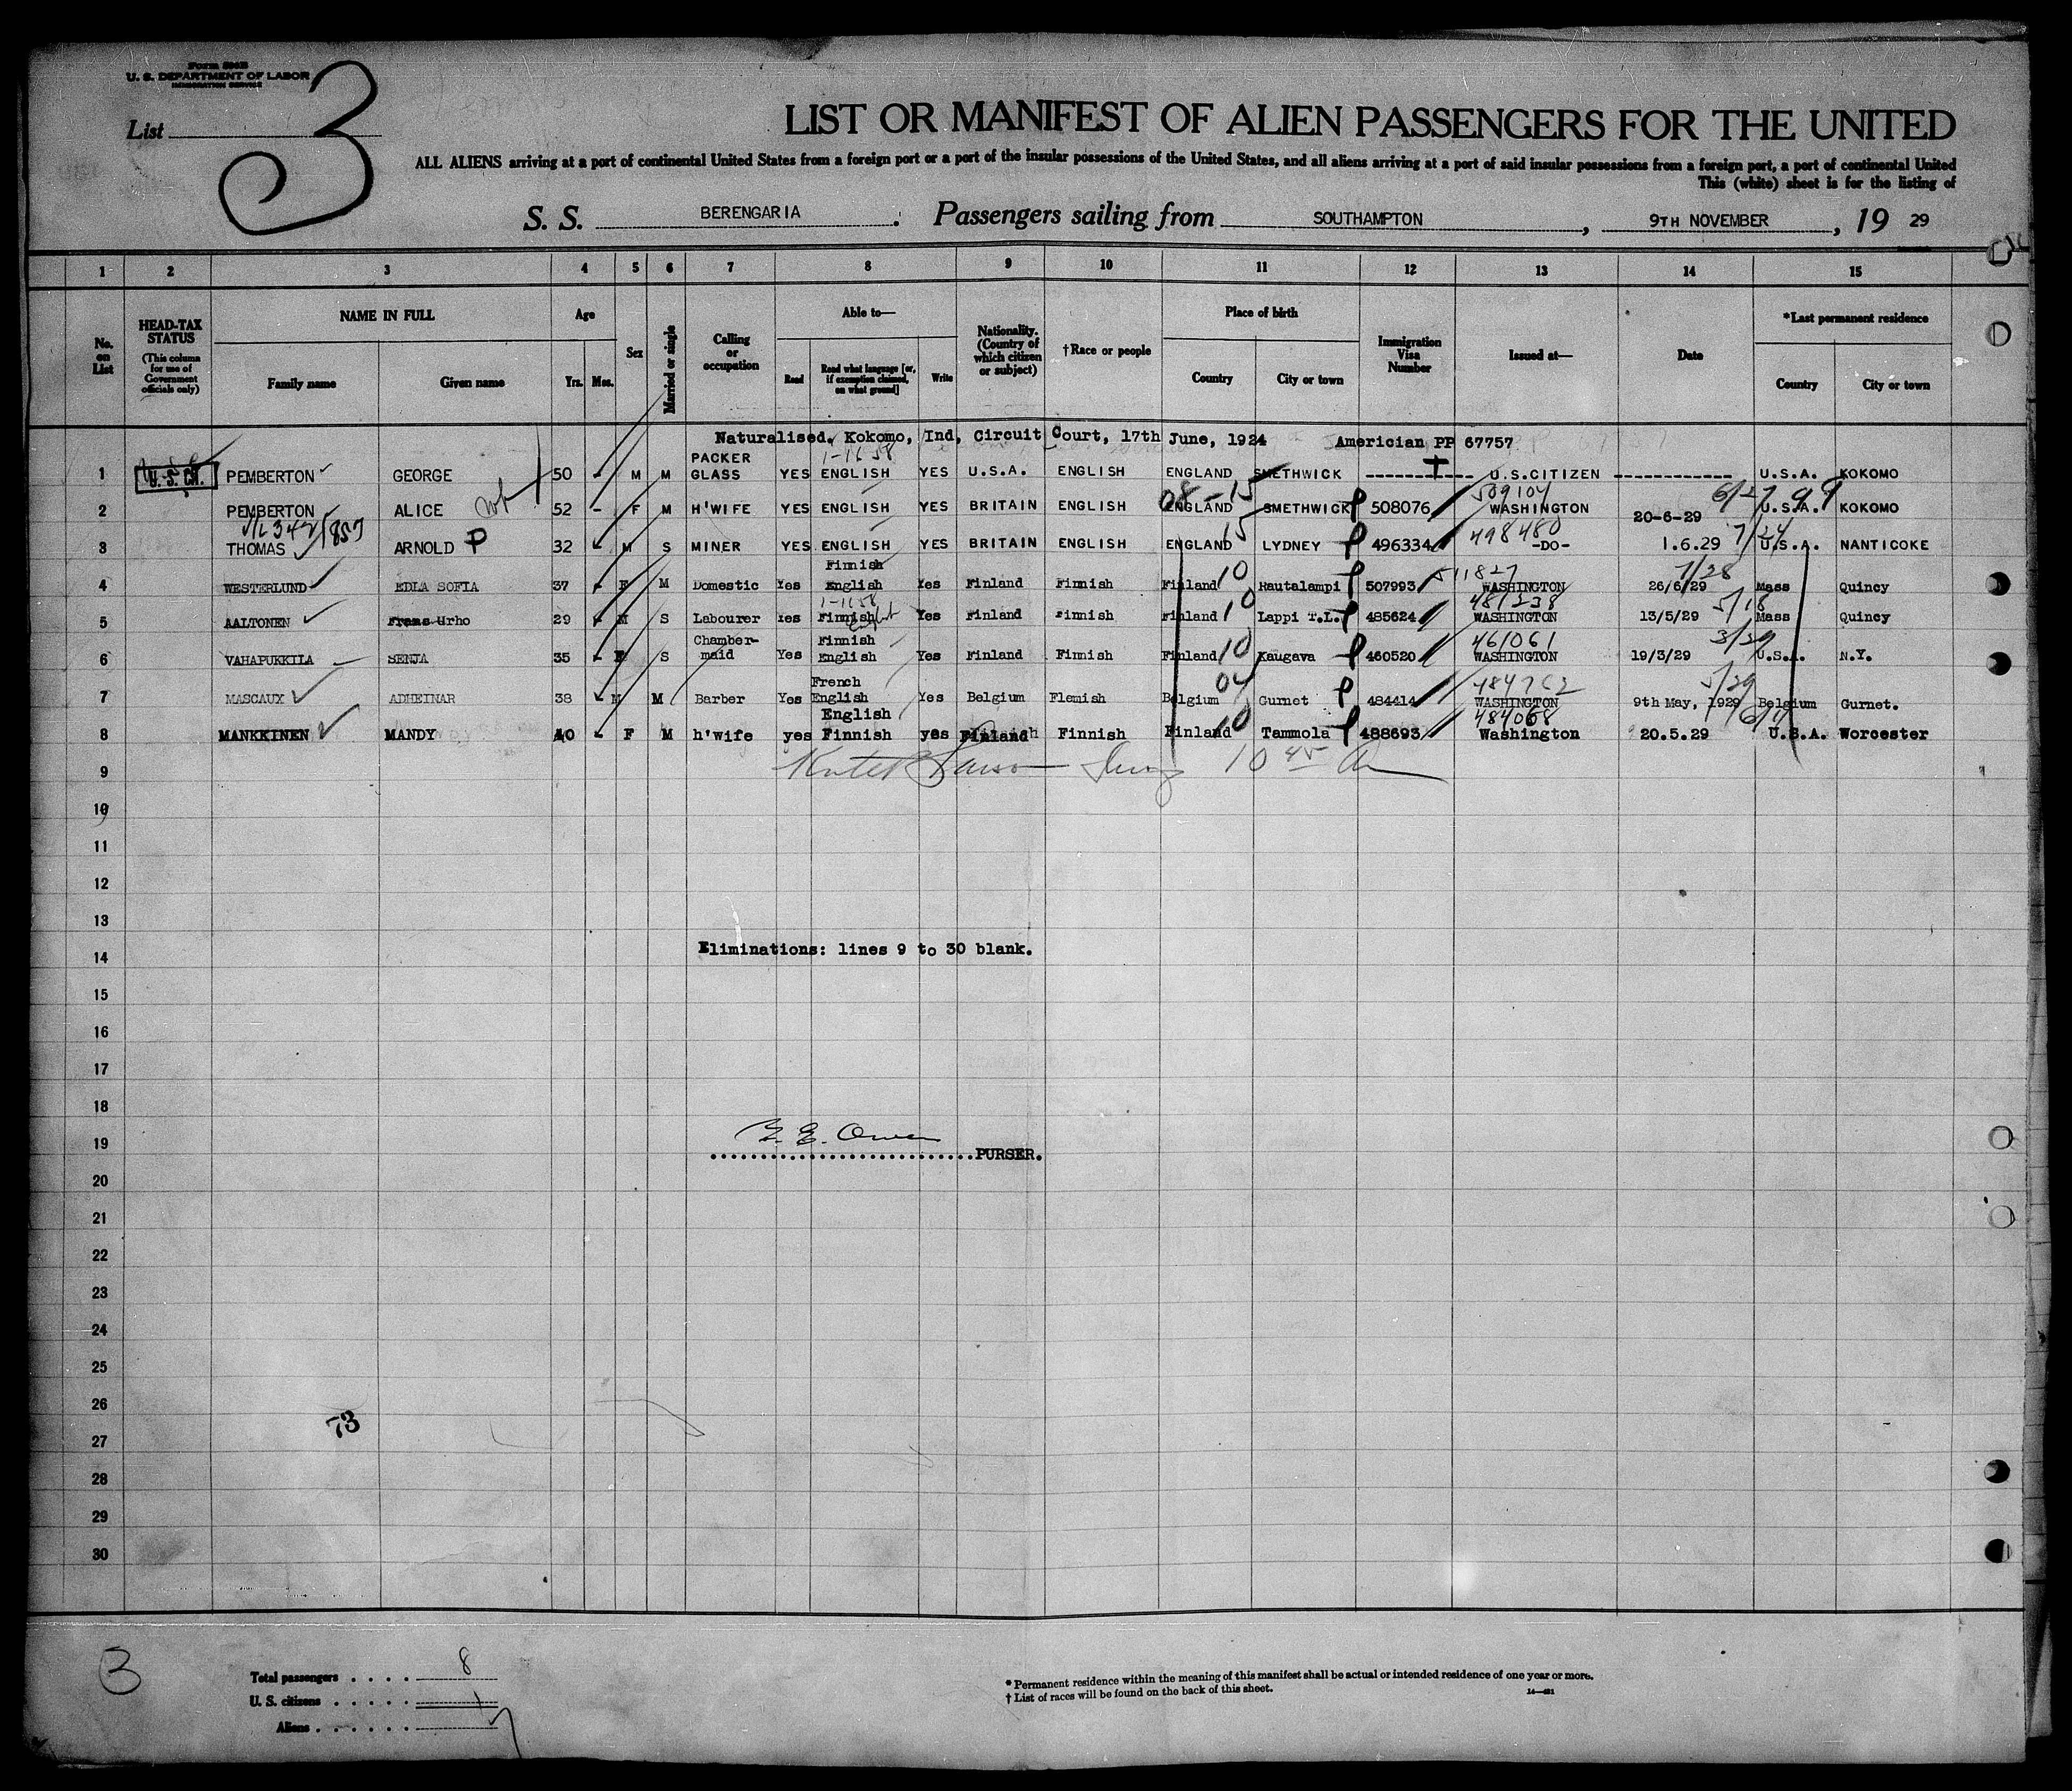 Form 500B
U. S. DEPARTMENT OF LABOR
IMMIGRATION SERVICE
List 3
LIST OR MANIFEST OF ALIEN PASSENGERS FOR THE UNITED
ALL ALIENS arriving at a port of continental United States from a foreign port or a port of the insular possessions of the United States, and all aliens arriving at a port of said insular possessions from a foreign port, a port of continental United
This (white) sheet is for the listing of
S. S. BERENGARIA. Passengers sailing from SOUTHAMPTON, 9TH NOVEMBER, 19 29
1 2 3 4 5 6 7 8 9 10 11 12 13 14 15
No. on List
HEAD-TAX STATUS (This column for use of Government officials only)
NAME IN FULL Family name Given name
Age Yrs. Mos.
Sex
Married or single
Calling or occupation
Able to— Read Read what language [or, if exemption claimed, on what ground] Write
Nationality. (Country of which citizen or subject)
†Race or people
Place of birth Country City or town
Immigration Visa Number
Issued at—
Date
*Last permanent residence Country City or town
Naturalised, Kokomo, Ind, Circuit Court, 17th June, 1924 Americian PP 67757
1-1658
1 U. S. CIT. PEMBERTON GEORGE 50 - M M PACKER GLASS YES ENGLISH YES U.S.A. ENGLISH ENGLAND SMETHWICK U.S.CITIZEN U.S.A. KOKOMO
08-15 509104 6/27 99
2 PEMBERTON ALICE 52 - F M H'WIFE YES ENGLISH YES BRITAIN ENGLISH ENGLAND SMETHWICK 508076 WASHINGTON 20-6-29 U.S.A. KOKOMO
15 498480 7/24
3 THOMAS ARNOLD P 32 - M S MINER YES ENGLISH YES BRITAIN ENGLISH ENGLAND LYDNEY 496334 -DO- 1.6.29 U.S.A. NANTICOKE
10 511827 7/28
4 WESTERLUND EDLA SOFIA 37 - F M Domestic Yes Finnish English Yes Finland Finnish Finland Rautalampi 507993 WASHINGTON 26/6/29 Mass Quincy
1-1658 10 481238 5/18
5 AALTONEN Frans Urho 29 - M S Labourer Yes Finnish Yes Finland Finnish Finland Lappi T.L. 485624 WASHINGTON 13/5/29 Mass Quincy
10 461061
6 VAHAPUKKILA SENJA 35 - F S Chamber-maid Yes Finnish English Yes Finland Finnish Finland Kaugava 460520 WASHINGTON 19/3/29 U.S.A. N.Y.
04 5/29
7 MASCAUX ADHEIMAR 38 - M M Barber Yes French English Yes Belgium Flemish Belgium Gurnet 484414 WASHINGTON 9th May, 1929 Belgium Gurnet.
10 484068
8 MANKKINEN MANDY 40 - F M h'wife yes English Finnish yes Finland Finnish Finland Tammola 488693 Washington 20.5.29 U.S.A. Worcester
9 10 45
10
11
12
13
Eliminations: lines 9 to 30 blank.
14
15
16
17
18
19 Owen
PURSER.
20
21
22
23
24
25
26
73
27
28
29
30
3
Total passengers . . . . 8
U. S. citizens . . . . . 1
Aliens . . . . . . 7
* Permanent residence within the meaning of this manifest shall be actual or intended residence of one year or more.
† List of races will be found on the back of this sheet.